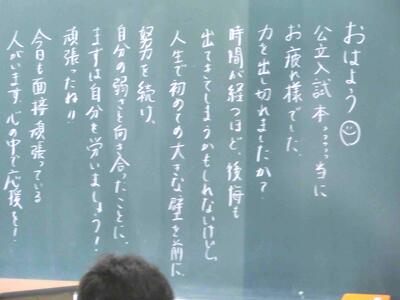 おはよう
公立入試本っっっ当に
お疲れ様でした。
力を出し切れましたか？
時間が経つほど、後悔も
出てきてしまうかもしれないけど、
人生で初めての大きな壁を前に
努力を続け、
自分の弱さと向き合ったことに、
まずは自分を労いましょう！
頑張ったね!!
今日も面接頑張っている
人がいます。心の中で応援を！